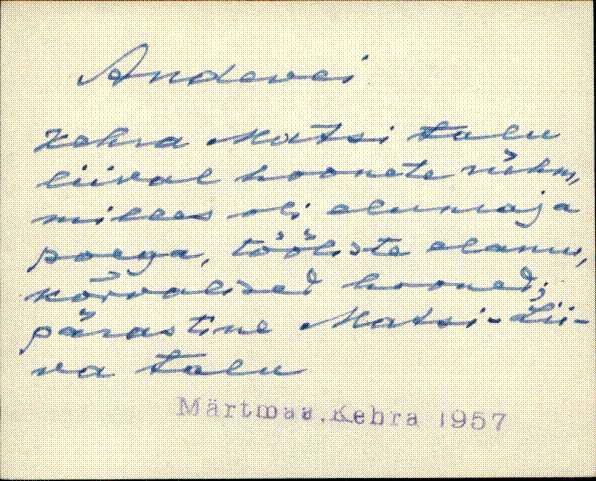 Anderei
Kehra Matsi talu
liival hoonete rühm,
milles oli elumaja
poega, tööliste elamu,
kõrvalised hooned;
pärastine Matsi-Lii-
va talu
Märtmaa, Kehra 1957